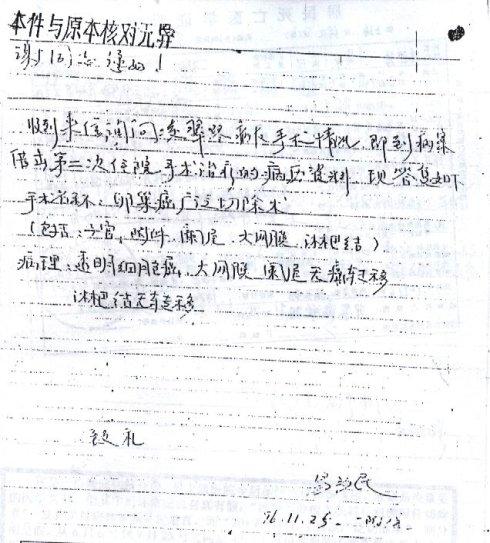 本件与原本核对无异
收到来信询问凌翠 病及手术情况,即到病案
借出第二次住院手术治疗的病历资料,现答复如下
手术名称:卵巢癌广泛切除术
(包括:子宫,附件,阑尾,大网膜,淋巴结)
病理:透明细胞癌,大网膜阑尾无癌转移
淋巴结无转移
致礼
96.11.25.